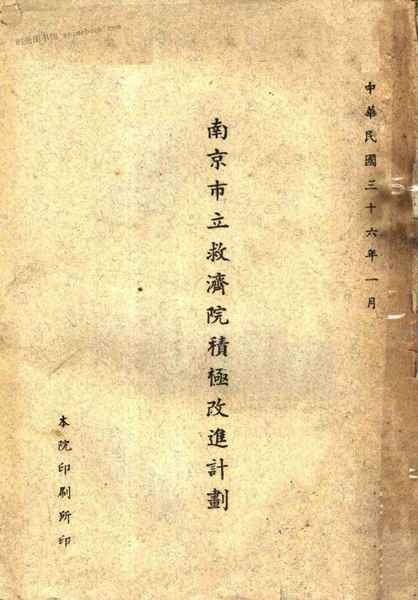 中華民國三十六年一月
南京市立救濟院積極改進計劃
本院印刷所印